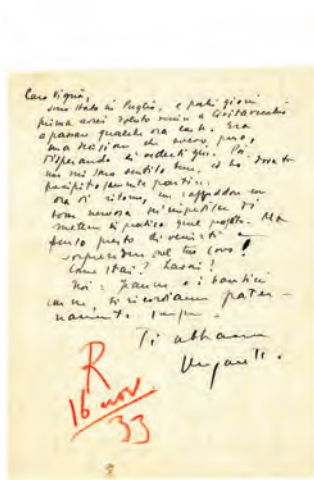 Caro Viganò,
sono stato in Puglia, e pochi giorni
prima avrei voluto venire a Civitavecchia
a passare qualche ora con te. Era
una missione che avevo, però,
disperando di vederti qui. Poi
non mi sono sentito bene, ed ho dovuto
precipitosamente partire.
ora di ritorno, un raffreddore con
tosse nervosa m'impedisce di
mettere in pratica quel progetto. Ma
penso presto di venirti a
sorprendere nel tuo covo!
Come stai? Lavori?
Noi: Jeanne e i bambini
con me, ti ricordiamo
sempre.
Ti abbraccio
Ungaretti.
R
16 nov
33